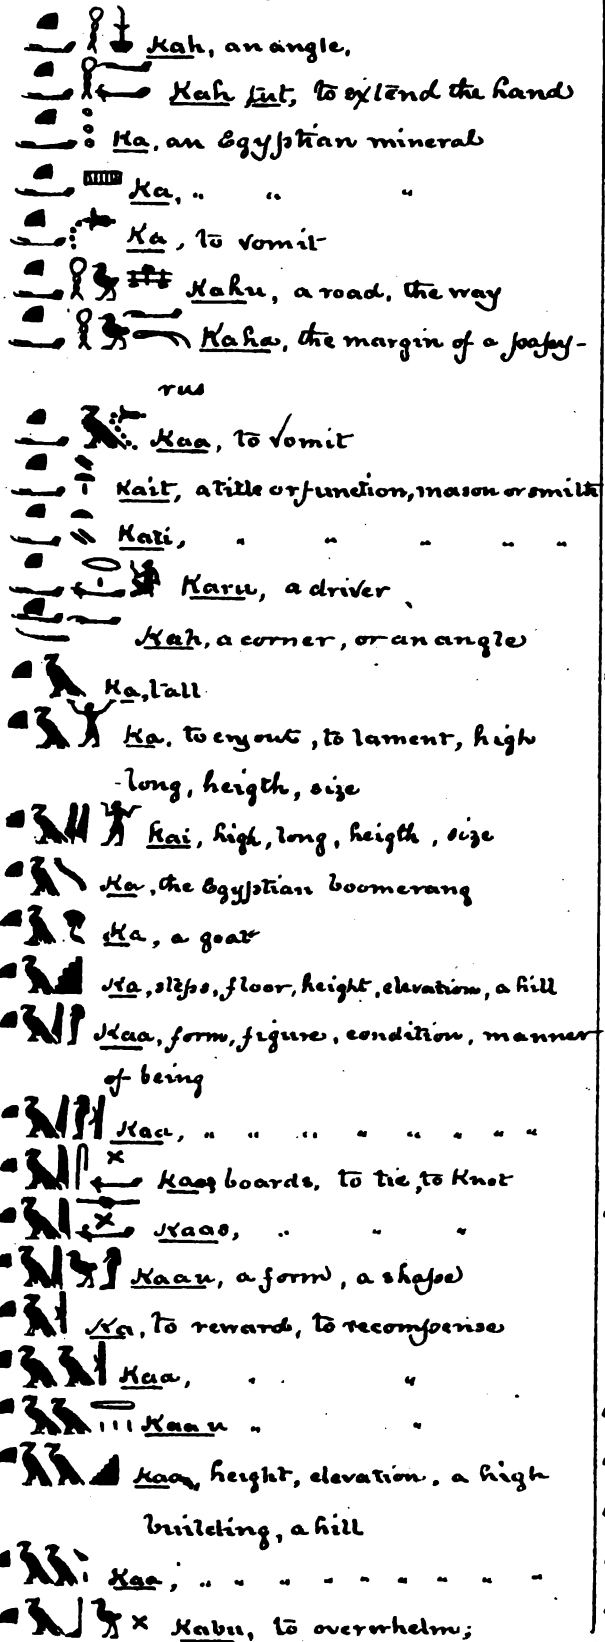 Kah, an angle,
Kah tut, to extend the hand
Ka, an Egyptian mineral
Ka, " " "
Ka, to vomit
Kahu, a road, the way
Kaha, the margin of a papy-
rus
Kaa, to vomit
Kait, a title or function, mason or smith
Kati, " " " " "
Karu, a driver
Kah, a corner, or an angle
Ka, tall
Ka, to cry out, to lament, high
long, heigth, size
Kai, high, long, heigth, size
Ka, the Egyptian boomerang
Ka, a goat
Ka, steps, floor, height, elevation, a hill
Kaa, form, figure, condition, manner
of being
Kaa, " " " " " " " "
Kaas, boards, to tie, to Knot
Kaas, " " "
Kaau, a form, a shape
Ka, to reward, to recompense
Kaa, " "
Kaau " "
Kaa, height, elevation, a high
building, a hill
Kaa, " " " " " " " " "
Kabu, to overwhelm;